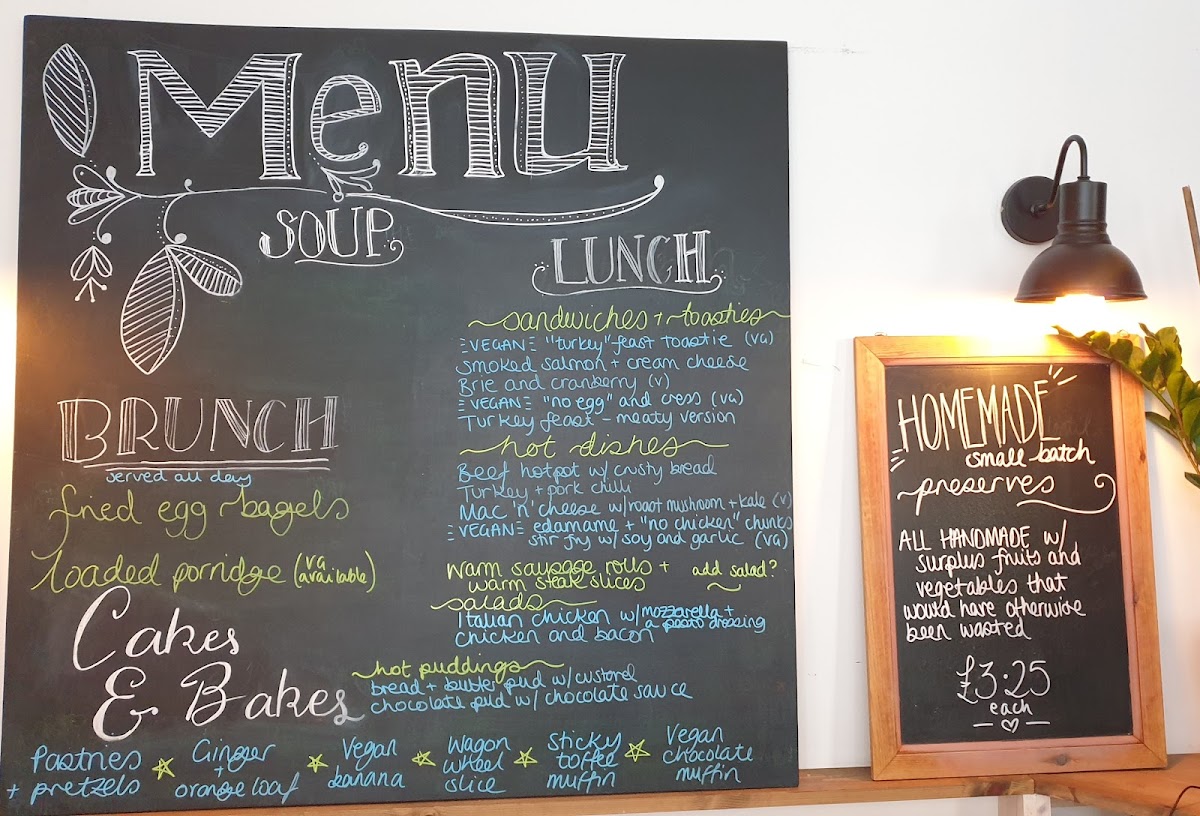 Menu
SOUP
BRUNCH
served all day
fried egg bagels
loaded porridge (va available)
LUNCH
sandwiches + toasties
VEGAN "turkey" feast toastie (va)
Smoked salmon + cream cheese
Brie and cranberry (v)
VEGAN "no egg" and cress (va)
Turkey feast - meaty version
hot dishes
Beef hotpot w/ crusty bread
Turkey + pork chilli
Mac 'n' cheese w/ roast mushroom + kale (v)
VEGAN edamame + "no chicken" chunks
stir fry w/ soy and garlic (va)
warm sausage rolls +
warm steak slices
add salad?
salads
Italian chicken w/ mozzarella +
a pesto dressing
chicken and bacon
hot puddings
bread + butter pud w/ custard
chocolate pud w/ chocolate sauce
Cakes
& Bakes
Pastries
+ pretzels
Ginger
+
orange loaf
Vegan
banana
Wagon
wheel
slice
Sticky
toffee
muffin
Vegan
chocolate
muffin
HOMEMADE
small batch
preserves
ALL HANDMADE w/
surplus fruits and
vegetables that
would have otherwise
been wasted
£3.25
each